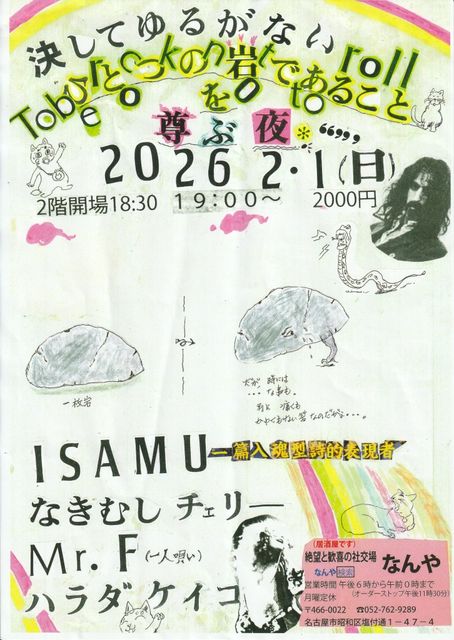 決してゆるがない
To be or rock not to roll
ロックの岩であることを
尊ぶ夜*
2026 2・1(日)
2階開場18:30 19:00〜 2000円
一枚岩
だが、時には
・・・な事も。
別に 痛くも
かゆくもない筈なのだが。・・・
ISAMU 一篇入魂型詩的表現者
なきむし チェリー
Mr. F (一人唄い)
ハラダ ケイコ
(居酒屋です)
絶望と歓喜の社交場 なんや
なんや 検索
営業時間 午後6時から午前0時まで
月曜定休 (オーダーストップ午後11時30分)
〒466-0022 ☎052-762-9289
名古屋市昭和区塩付通1-47-4